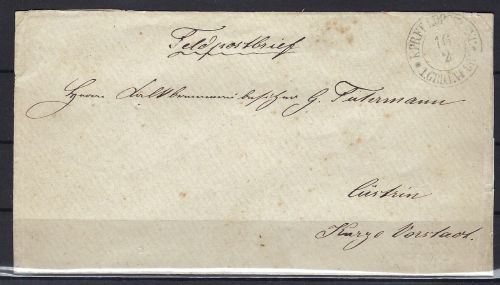 Feldpostbrief
16
2
Herrn Kalkbrennereibesitzer G. Tutermann
Cüstrin
Kurze Vorstadt.